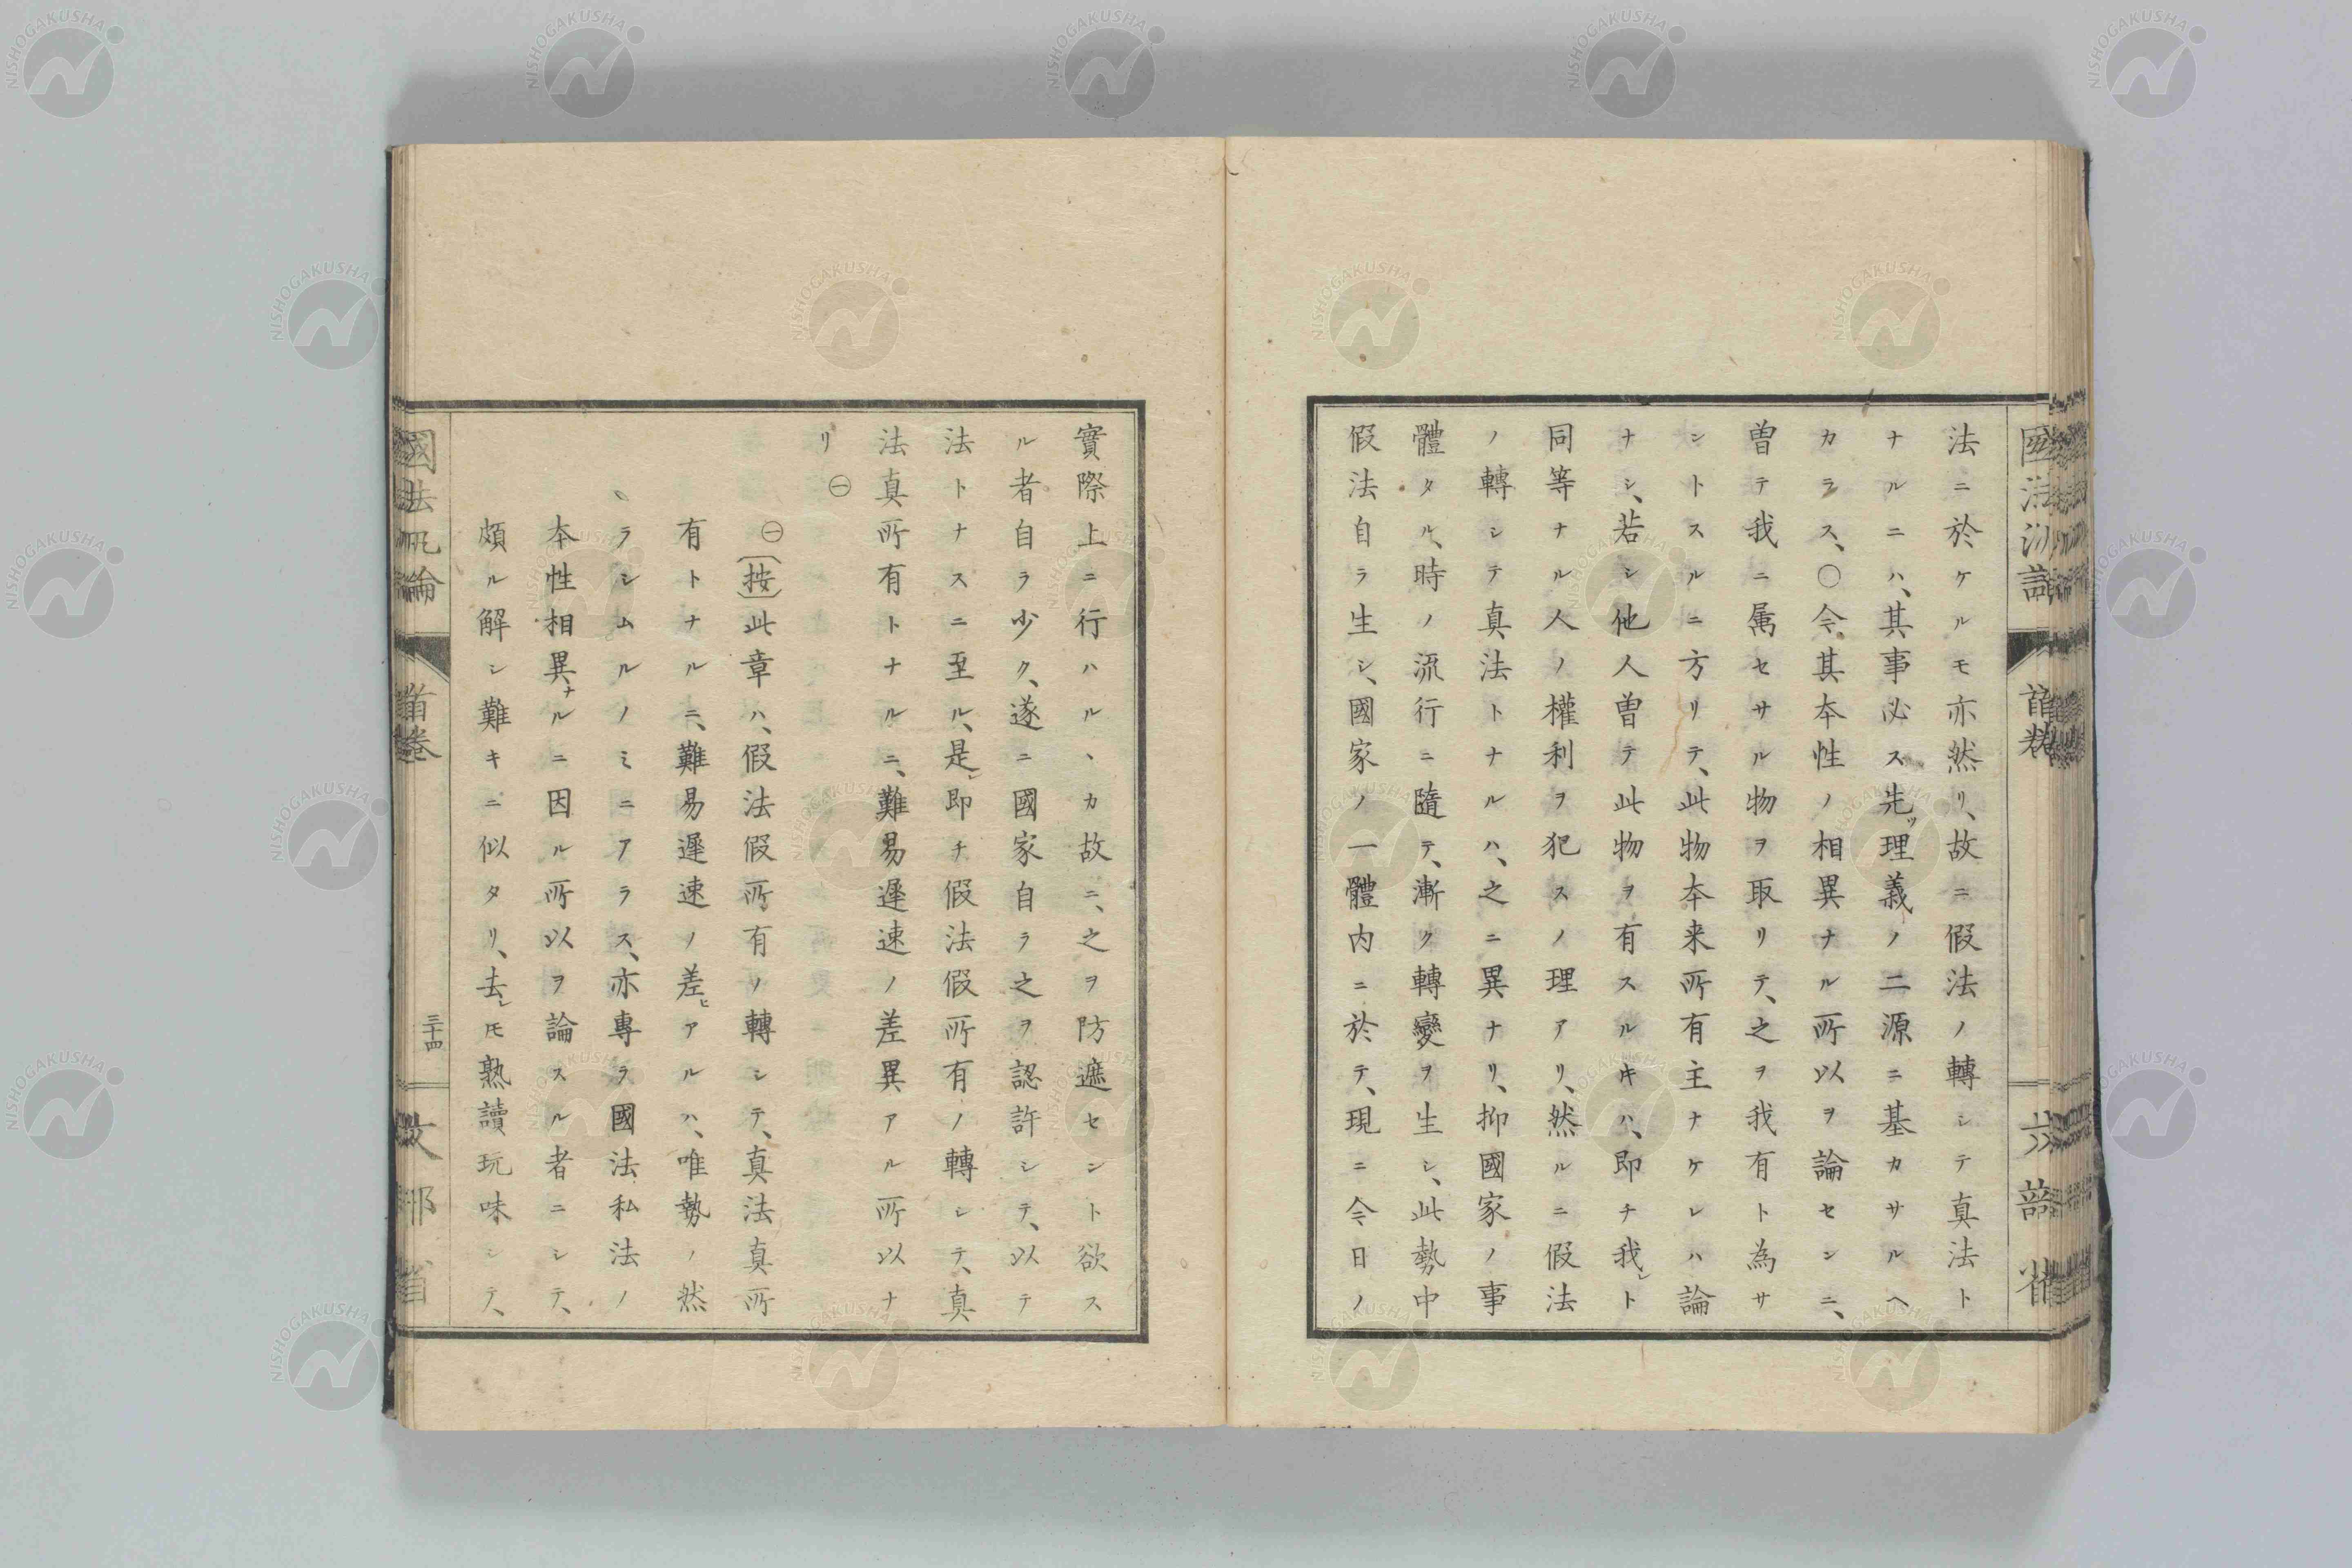 法ニ於ケルモ亦然リ、故ニ假法ノ轉シテ真法ト
ナルニハ、其事必ス先ツ理義ノ二源ニ基カサルヘ
カラス、○今其本性ノ相異ナル所以ヲ論センニ、
曽テ我ニ属セサル物ヲ取リテ、之ヲ我有ト為サ
ントスルニ方リテ、此物本来所有主ナケレハ論
ナシ、若シ他人曽テ此物ヲ有スルキハ、即チ我レト
同等ナル人ノ權利ヲ犯スノ理アリ、然ルニ假法
ノ轉シテ真法トナルハ、之ニ異ナリ、抑國家ノ事
體タル、時ノ流行ニ隨テ、漸ク轉變ヲ生シ、此勢中
假法自ラ生シ、國家ノ一體内ニ於テ、現ニ今日ノ
實際上ニ行ハルヽカ故ニ、之ヲ防遮セント欲ス
ル者自ラ少ク、遂ニ國家自ラ之ヲ認許シテ、以テ
法トナスニ至ル、是レ即チ假法假所有ノ轉シテ、真
法真所有トナルニ、難易遲速ノ差異アル所以ナ
リ㊀
㊀(按)此章ハ、假法假所有ノ轉シテ、真法真所
有トナルニ、難易遲速ノ差ヒアルハ、唯勢ノ然
ラシムルノミニアラス、亦專ラ國法私法ノ
本性相異ナルニ因ル所以ヲ論スル者ニシテ、
頗ル解シ難キニ似タリ、去レ𪜈熟讀玩味シテ、
國法汎論
首巻
三十四
文部省
NISHOGAKUSHA